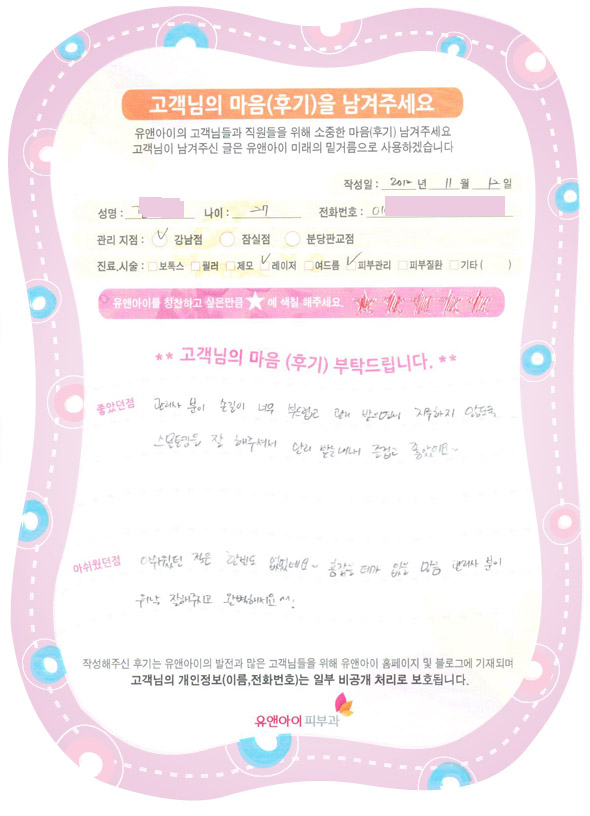 고객님의 마음(후기)을 남겨주세요
유앤아이의 고객님들과 직원들을 위해 소중한 마음(후기) 남겨주세요
고객님이 남겨주신 글은 유앤아이 미래의 밑거름으로 사용하겠습니다
작성일 : 2012 년 11 월 12 일
성명 : 나이 : 27 전화번호 : 01
관리 지점 : 강남점 잠실점 분당판교점
진료,시술 : 보톡스 필러 제모 레이저 여드름 피부관리 피부질환 기타 ( )
유앤아이를 칭찬하고 싶은만큼 ★ 에 색칠 해주세요.
** 고객님의 마음 (후기) 부탁드립니다. **
좋았던점 관리사 분이 손길이 너무 부드럽고 관리 받으면서 지루하지 않도록
잘 해주셔서 관리 받는내내 즐겁고 좋았어요~
아쉬웠던점 아쉬웠던 점은 한번도 없었네요~ 흠잡을 데가 없을 만큼 관리사 분이
워낙 잘해주시고 완벽하세요 ^^.
작성해주신 후기는 유앤아이의 발전과 많은 고객님들을 위해 유앤아이 홈페이지 및 블로그에 기재되며
고객님의 개인정보(이름,전화번호)는 일부 비공개 처리로 보호됩니다.
유앤아이피부과